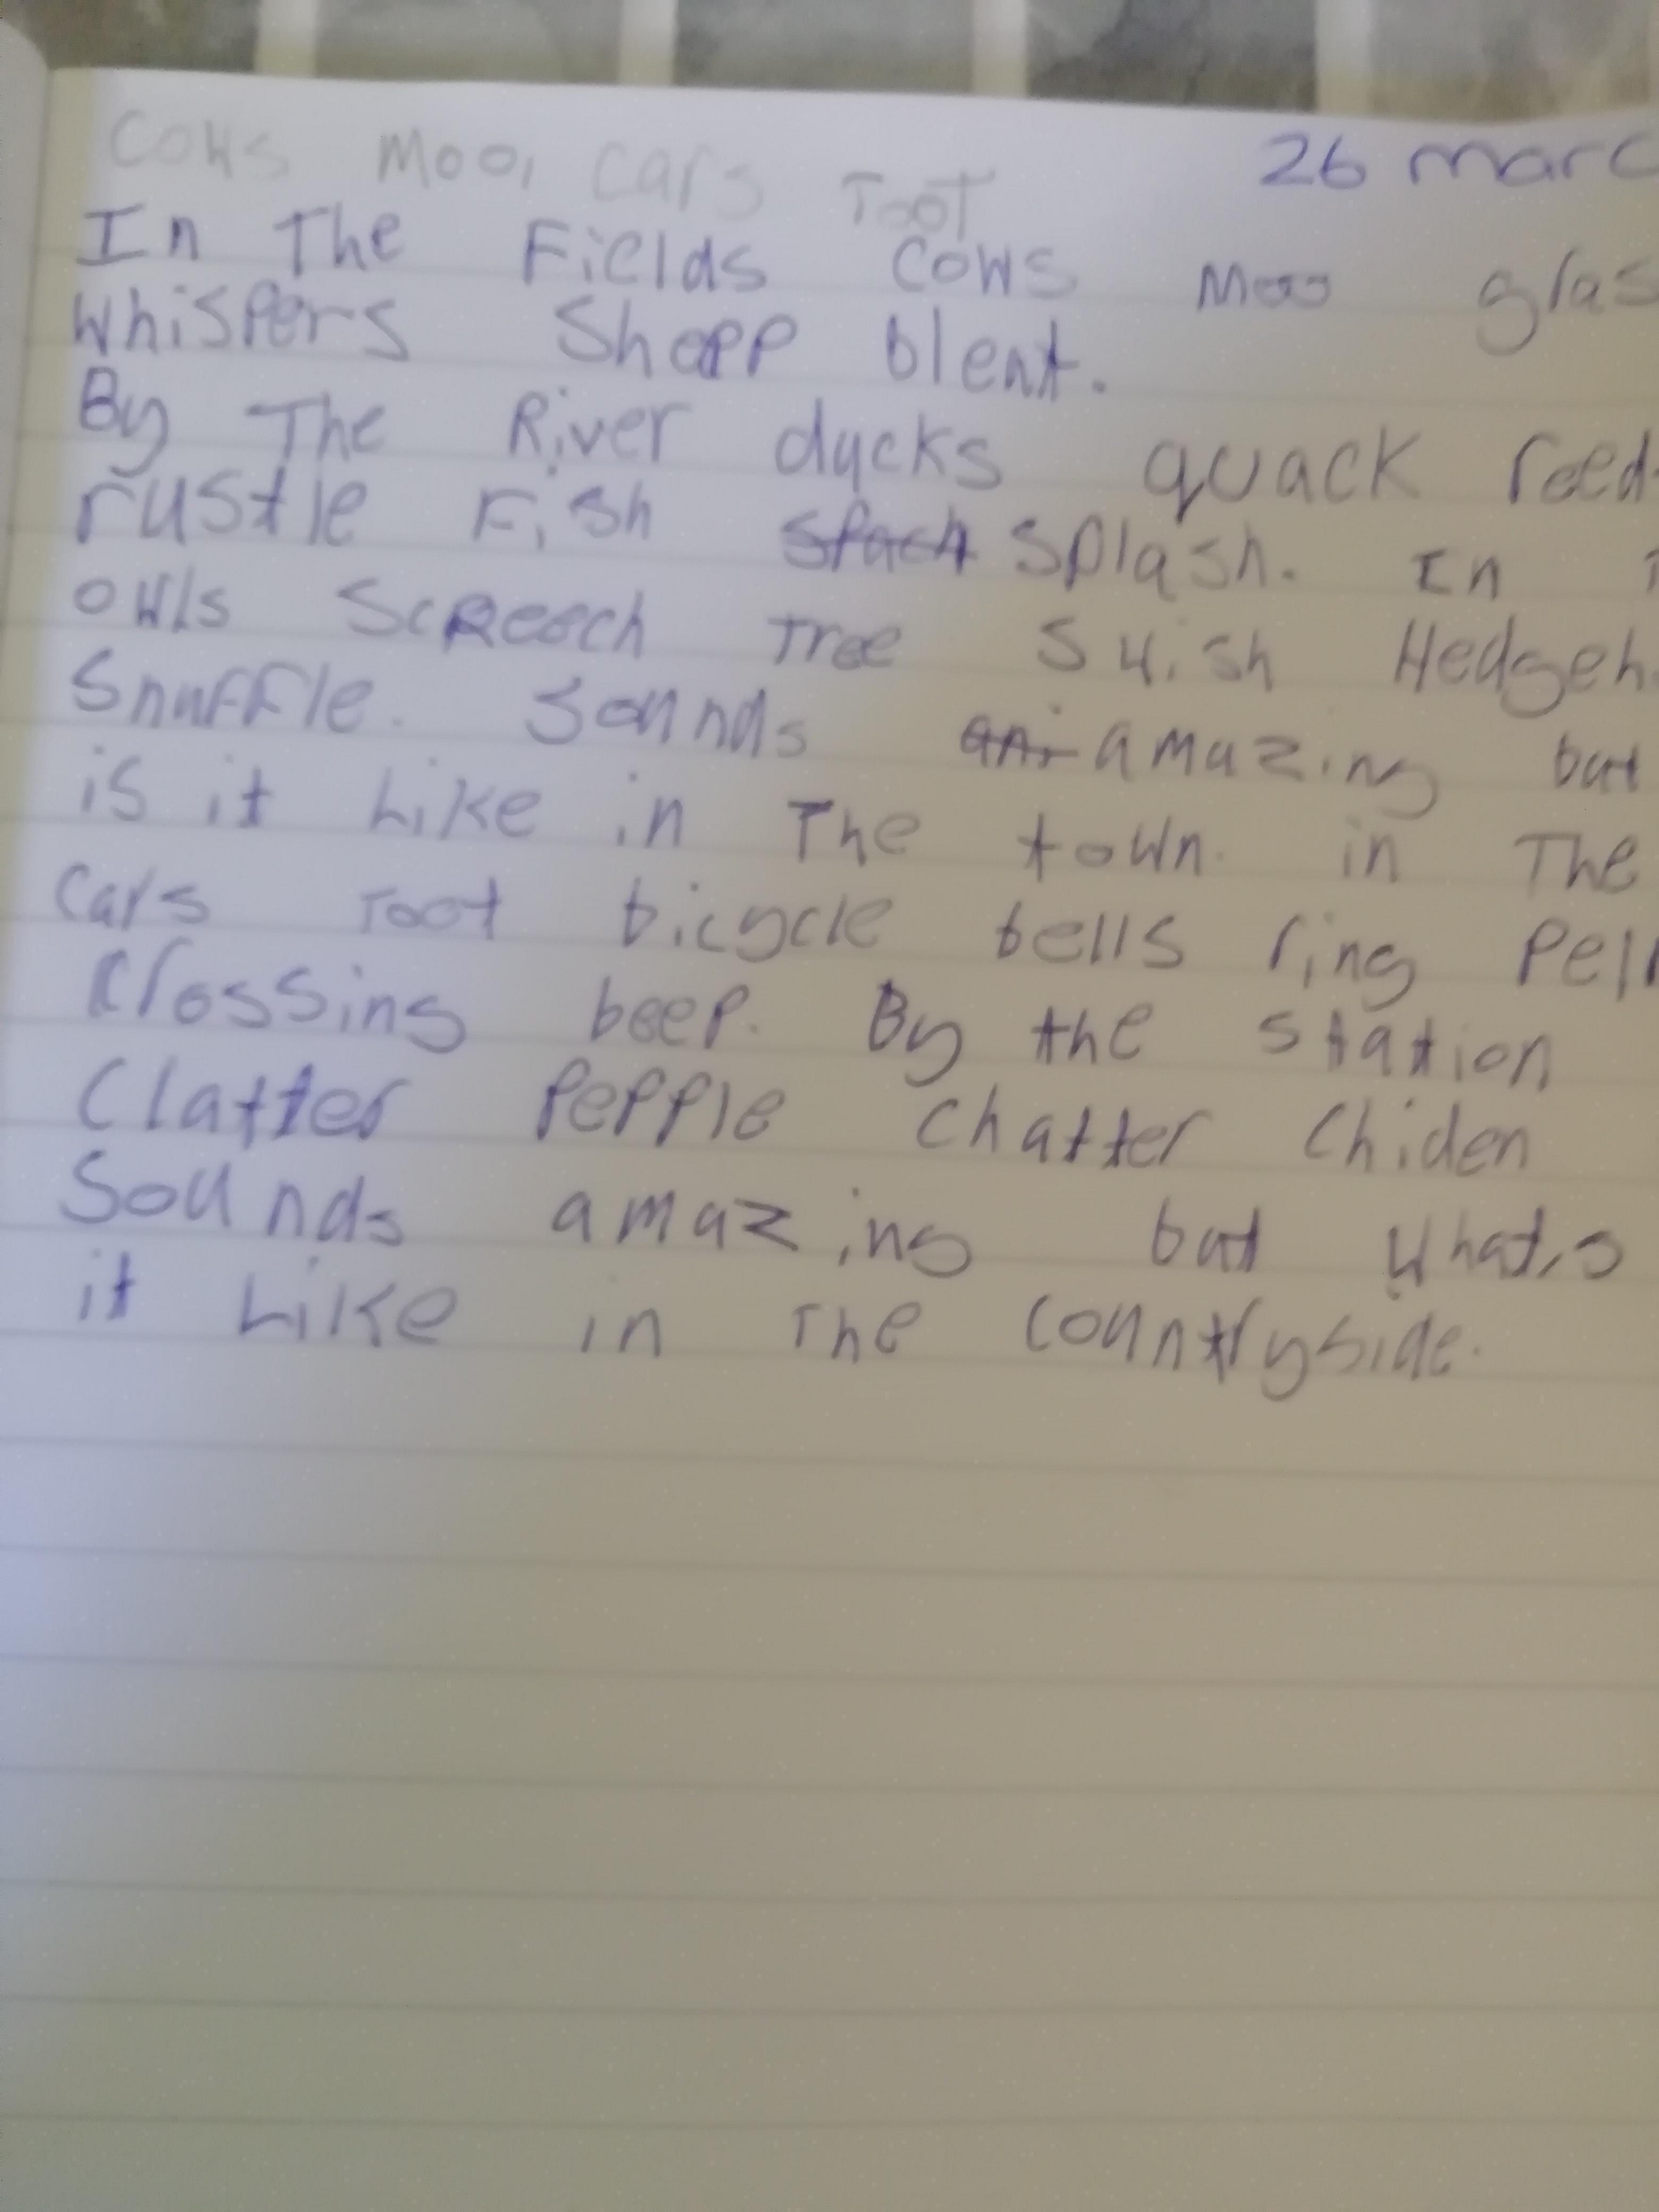 Cows Moo, Cars Toot
26 marc
In The Fields Cows Moo glas
Whispers Shepp blent.
By The River ducks quack reed
rustle Fish Splash. In
owls Screech Tree Swish Hedgeh
Snuffle. Sounds amazing but
is it Like in The town. in The
Cars Toot bicycle bells ring Peli
Crossing beep. By the station
Clatter Pepple Chatter Chiden
Sounds amazing but What,s
it Like in The Countryside.